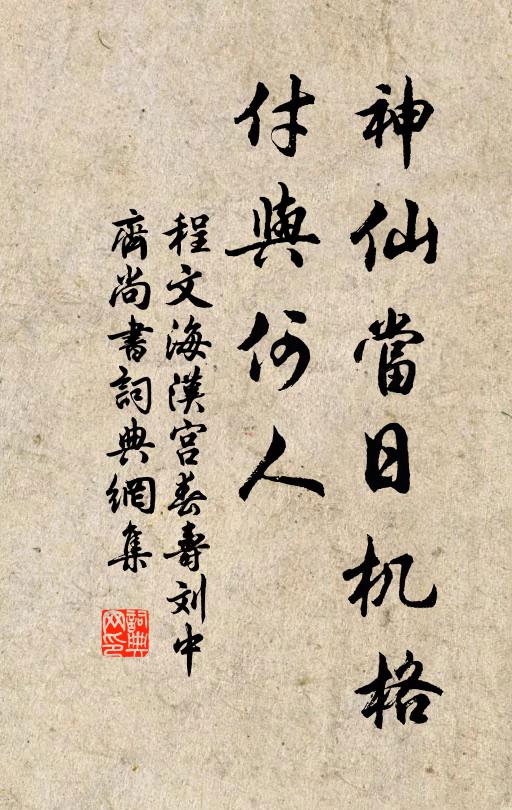 神仙當日机格
付與何人
程文海漢宮春壽刘中
齊尚書詞典網集
詞典網印